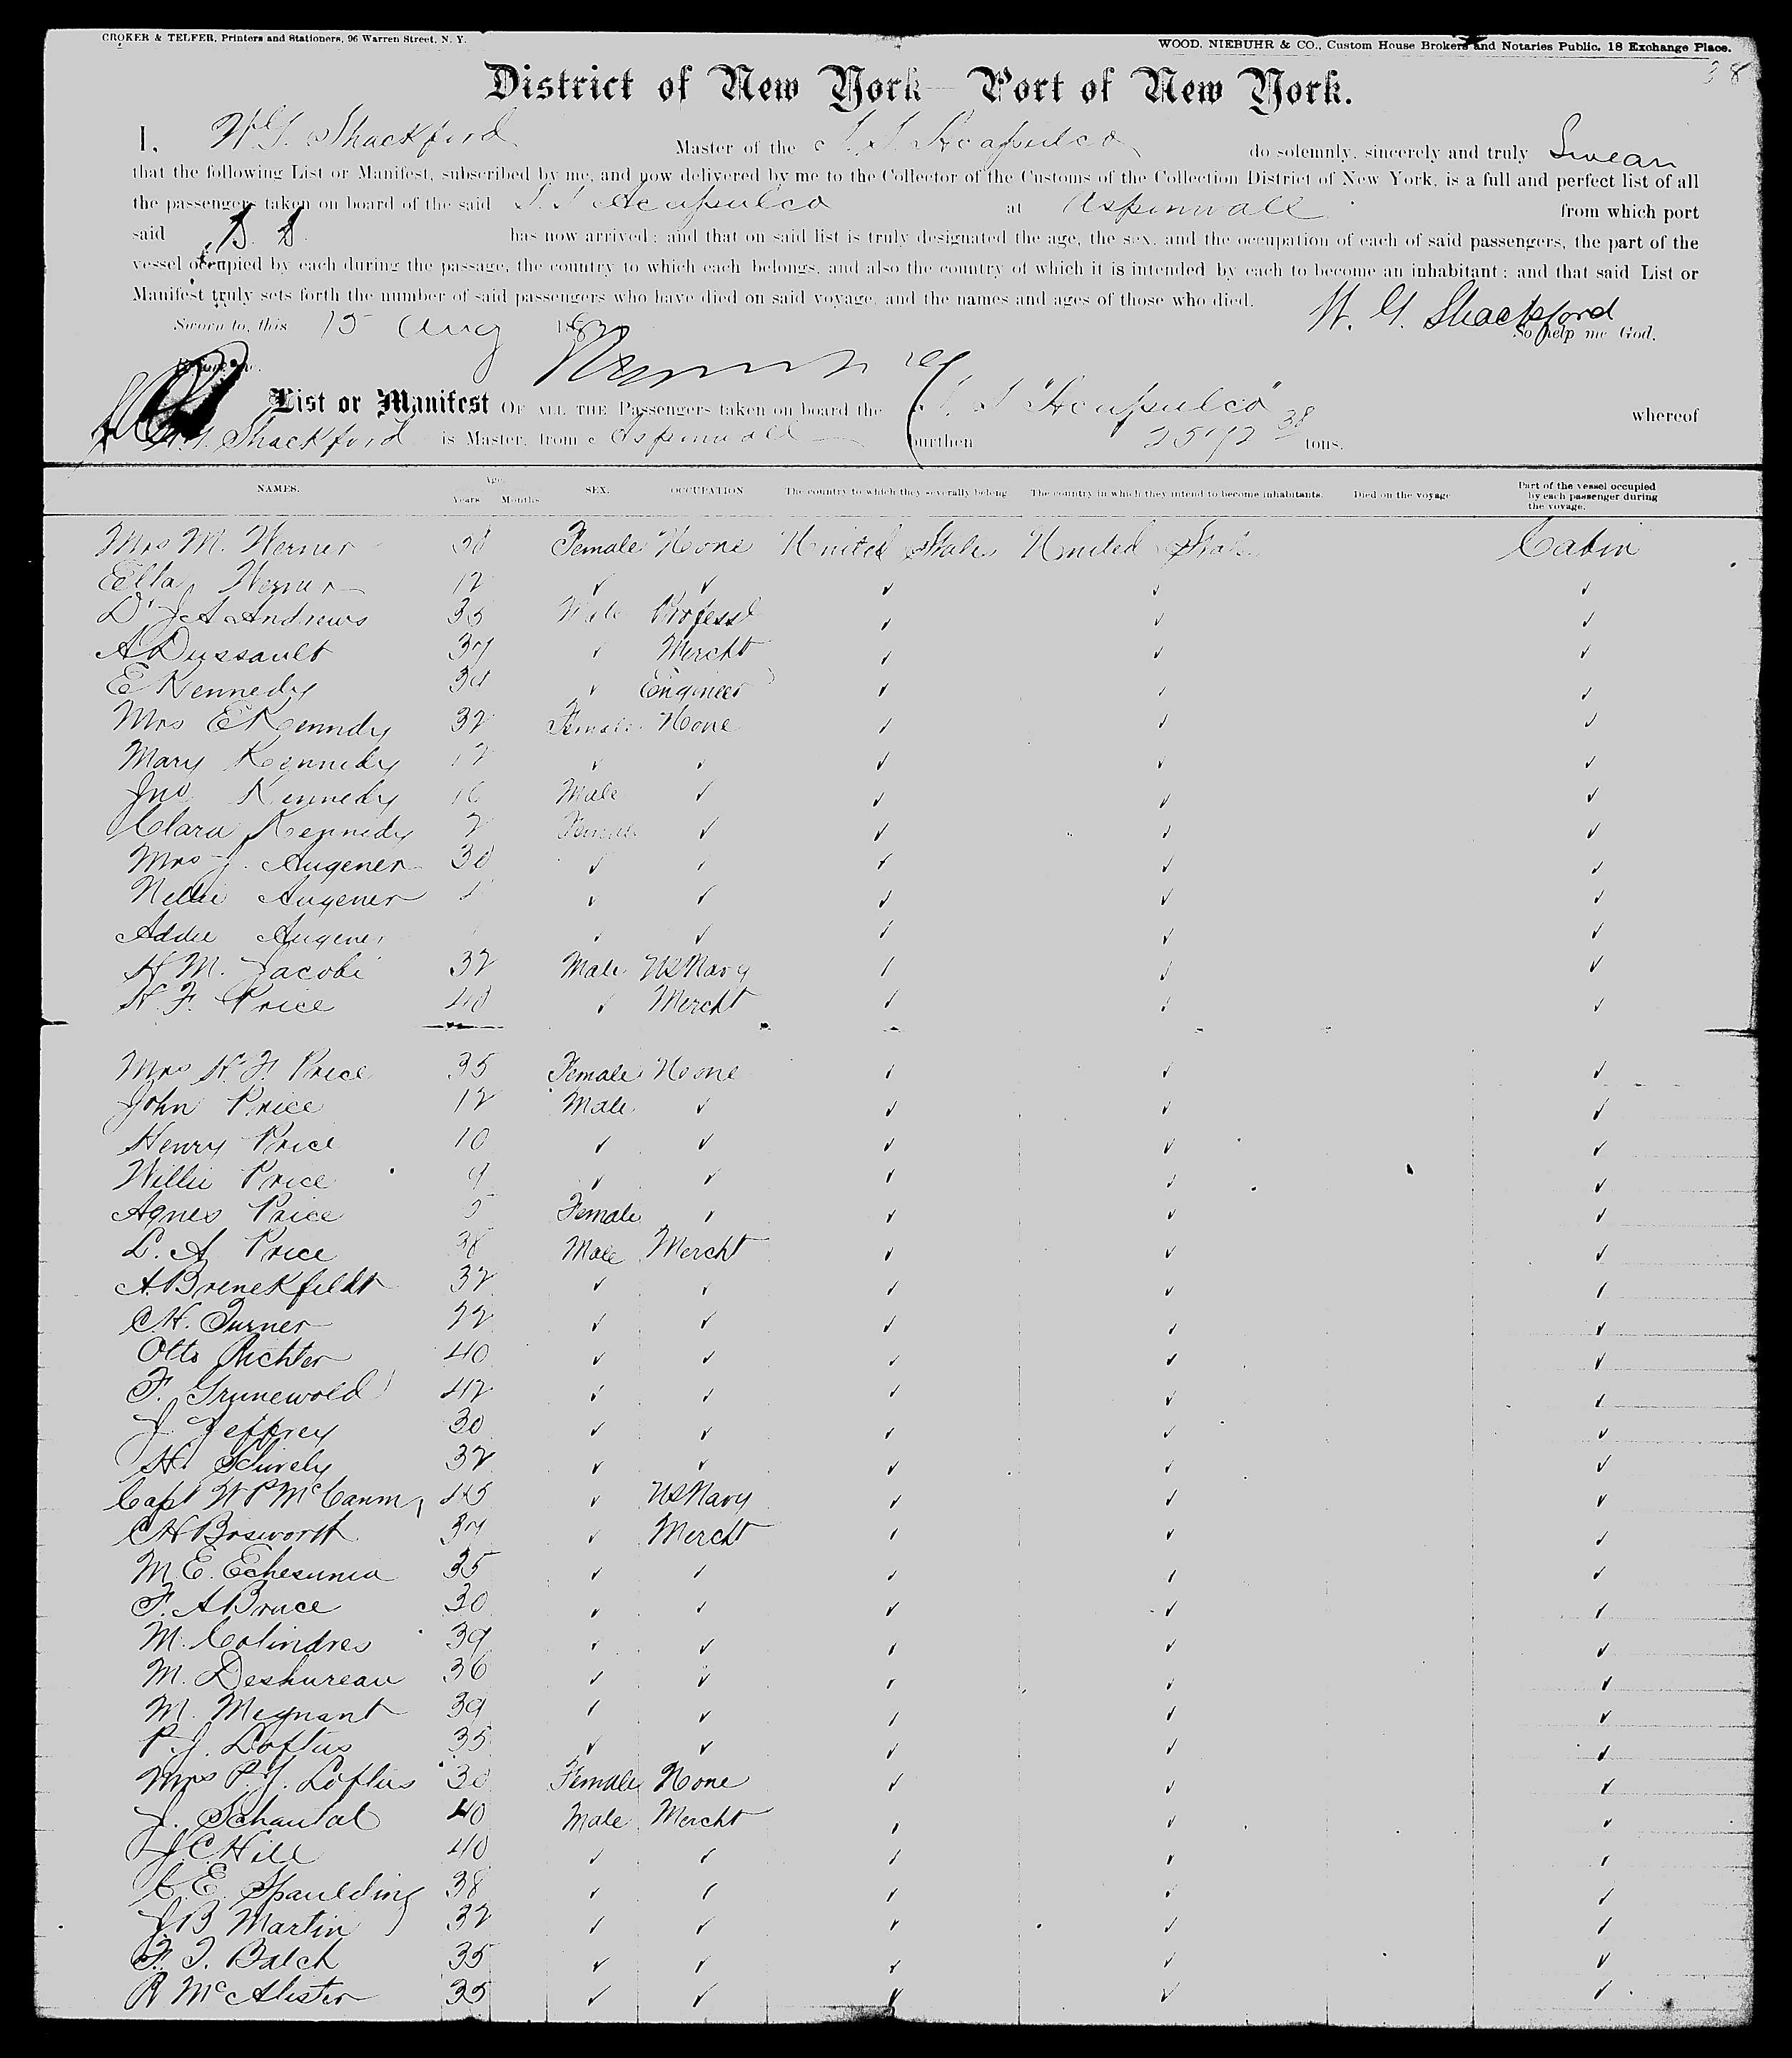 CROKER & TELFER, Printers and Stationers, 96 Warren Street, N. Y.
WOOD, NIEBUHR & CO., Custom House Brokers and Notaries Public. 18 Exchange Place.
38
District of New York — Port of New York.
I, W. G. Shackford Master of the S. S. Acapulco do solemnly, sincerely and truly Swear
that the following List or Manifest, subscribed by me, and now delivered by me to the Collector of the Customs of the Collection District of New York, is a full and perfect list of all
the passengers taken on board of the said S. S. Acapulco at Aspinwall from which port
said S. S. has now arrived; and that on said list is truly designated the age, the sex, and the occupation of each of said passengers, the part of the
vessel occupied by each during the passage, the country to which each belongs, and also the country of which it is intended by each to become an inhabitant; and that said List or
Manifest truly sets forth the number of said passengers who have died on said voyage, and the names and ages of those who died.
W. G. Shackford
Sworn to, this 15 Aug 18 So help me God.
List or Manifest OF ALL THE Passengers taken on board the S. S "Acapulco" whereof
W. G. Shackford is Master, from Aspinwall burthen 2572 38 tons.
NAMES. Age Years Months SEX. OCCUPATION The country to which they severally belong The country in which they intend to become inhabitants. Died on the voyage Part of the vessel occupied by each passenger during the voyage.
Mrs M. Werner 38 Female None United States United States Cabin
Ella Werner 12 ✓ ✓ ✓ ✓ ✓
Dr J A Andrews 35 Male Professl ✓ ✓ ✓
A Dussault 37 ✓ Mercht ✓ ✓ ✓
E Kennedy 34 ✓ Engineer ✓ ✓ ✓
Mrs E Kenndy 32 Female None ✓ ✓ ✓
Mary Kennedy 12 ✓ ✓ ✓ ✓ ✓
Jno Kennedy 10 Male ✓ ✓ ✓ ✓
Clara Kennedy 2 Female ✓ ✓ ✓ ✓
Mrs J. Augener 30 ✓ ✓ ✓ ✓ ✓
Nellie Augener ✓ ✓ ✓ ✓ ✓
Addie Augener ✓ ✓ ✓ ✓ ✓
H. M. Jacobi 32 Male US Navy ✓ ✓ ✓
H. F. Price 40 ✓ Mercht ✓ ✓ ✓
Mrs H. F. Price 35 Female None ✓ ✓ ✓
John Price 12 Male ✓ ✓ ✓ ✓
Henry Price 10 ✓ ✓ ✓ ✓ ✓
Willie Price 9 ✓ ✓ ✓ ✓ ✓
Agnes Price 5 Female ✓ ✓ ✓ ✓
L. A Price 38 Male Mercht ✓ ✓ ✓
A. Brenekfeldt 32 ✓ ✓ ✓ ✓ ✓
C. H. Turner 22 ✓ ✓ ✓ ✓ ✓
Otto Richter 40 ✓ ✓ ✓ ✓ ✓
F. Grunewold 42 ✓ ✓ ✓ ✓ ✓
J Jeffrey 30 ✓ ✓ ✓ ✓ ✓
H. Schively 32 ✓ ✓ ✓ ✓ ✓
Capt W P McCann 45 ✓ US Navy ✓ ✓ ✓
C H Bosworth 37 ✓ Mercht ✓ ✓ ✓
M. E. Echesunia 35 ✓ ✓ ✓ ✓ ✓
F. A Bruce 30 ✓ ✓ ✓ ✓ ✓
M. Colindres 39 ✓ ✓ ✓ ✓ ✓
M. Deshureau 36 ✓ ✓ ✓ ✓ ✓
M. Megnant 39 ✓ ✓ ✓ ✓ ✓
P. J. Loftus 35 ✓ ✓ ✓ ✓ ✓
Mrs P. J. Loftus 30 Female None ✓ ✓ ✓
J. Schantal 40 Male Mercht ✓ ✓ ✓
J. C. Hill 40 ✓ ✓ ✓ ✓ ✓
C. E. Spaulding 38 ✓ ✓ ✓ ✓ ✓
J B Martin 32 ✓ ✓ ✓ ✓ ✓
F. T. Balch 35 ✓ ✓ ✓ ✓ ✓
R McAlister 35 ✓ ✓ ✓ ✓ ✓